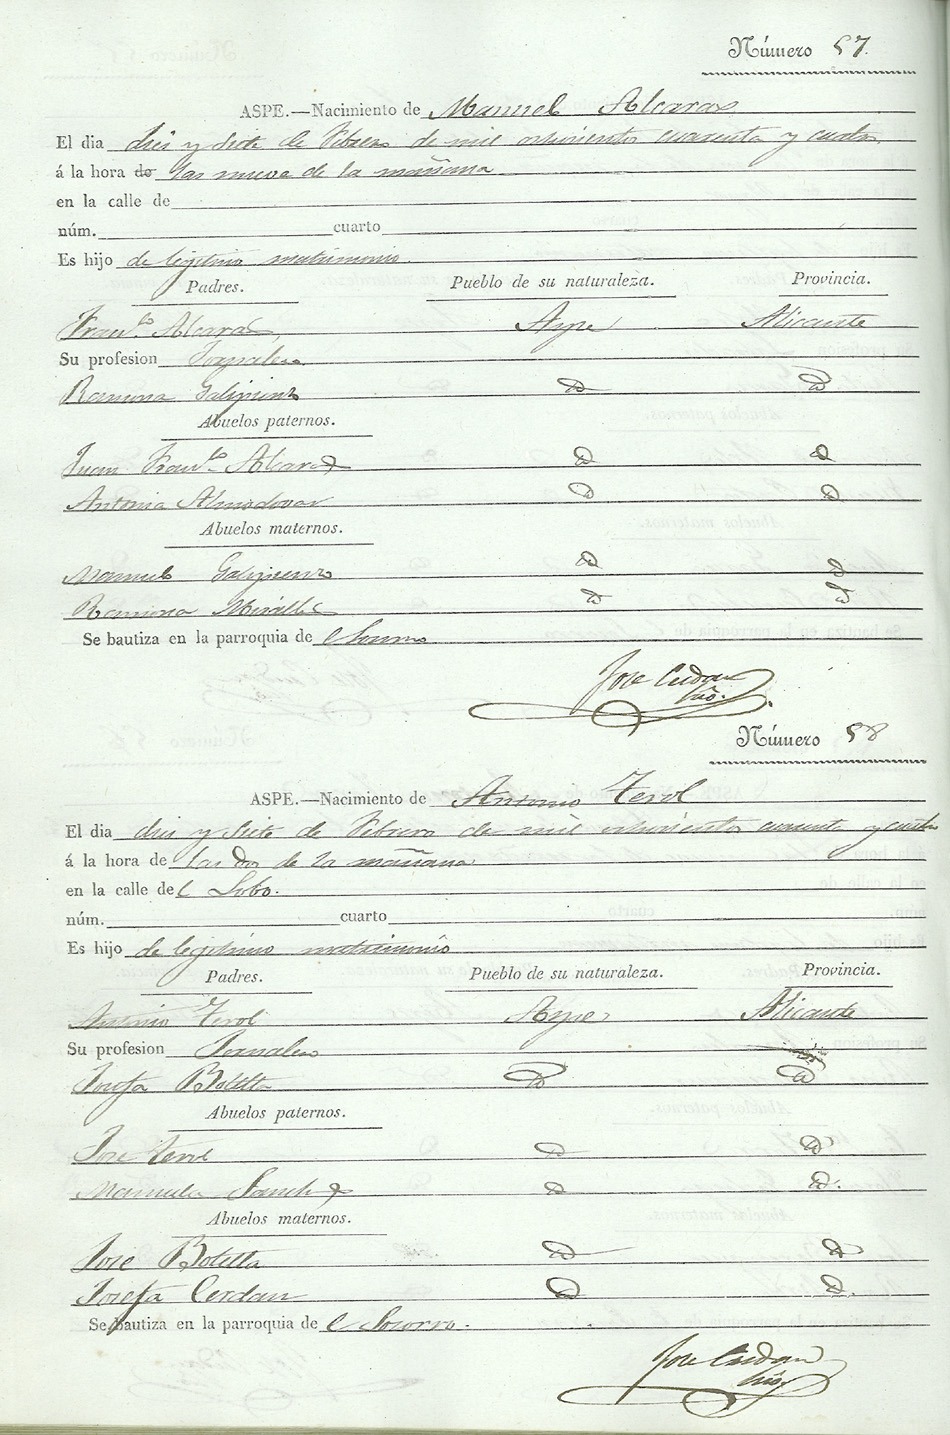 Número 57.
ASPE.—Nacimiento de Manuel Alcaraz
El dia diez y siete de Febrero de mil ochociento cuarenta y cuatro
á la hora de las nueve de la mañana
en la calle de
núm. cuarto
Es hijo de legitimo matrimonio.
Padres. Pueblo de su naturaleza. Provincia.
Franco. Alcaraz Aspe Alicante
Su profesion Jornalero
Ramona Galipienzo D D
Abuelos paternos.
Juan Franco. Alcaraz D D
Antonia Almodovar D D
Abuelos maternos.
Manuel Galipienzo D D
Ramona Miralles D D
Se bautiza en la parroquia de
Jose Cerdan
Número 58
ASPE.—Nacimiento de Antonio Terol
El dia diez y siete de Febrero de mil ochociento cuarenta y cuatro
á la hora de las dos de la mañana
en la calle del Lobo.
núm. cuarto
Es hijo de legitimo matrimonio
Padres. Pueblo de su naturaleza. Provincia.
Antonio Terol Aspe Alicante
Su profesion Jornalero
Josefa Botella D D
Abuelos paternos.
Jose Terol D D
Manuela Sanchez D D.
Abuelos maternos.
Jose Botella D D
Josefa Cerdan D D.
Se bautiza en la parroquia del Socorro.
Jose Cerdan